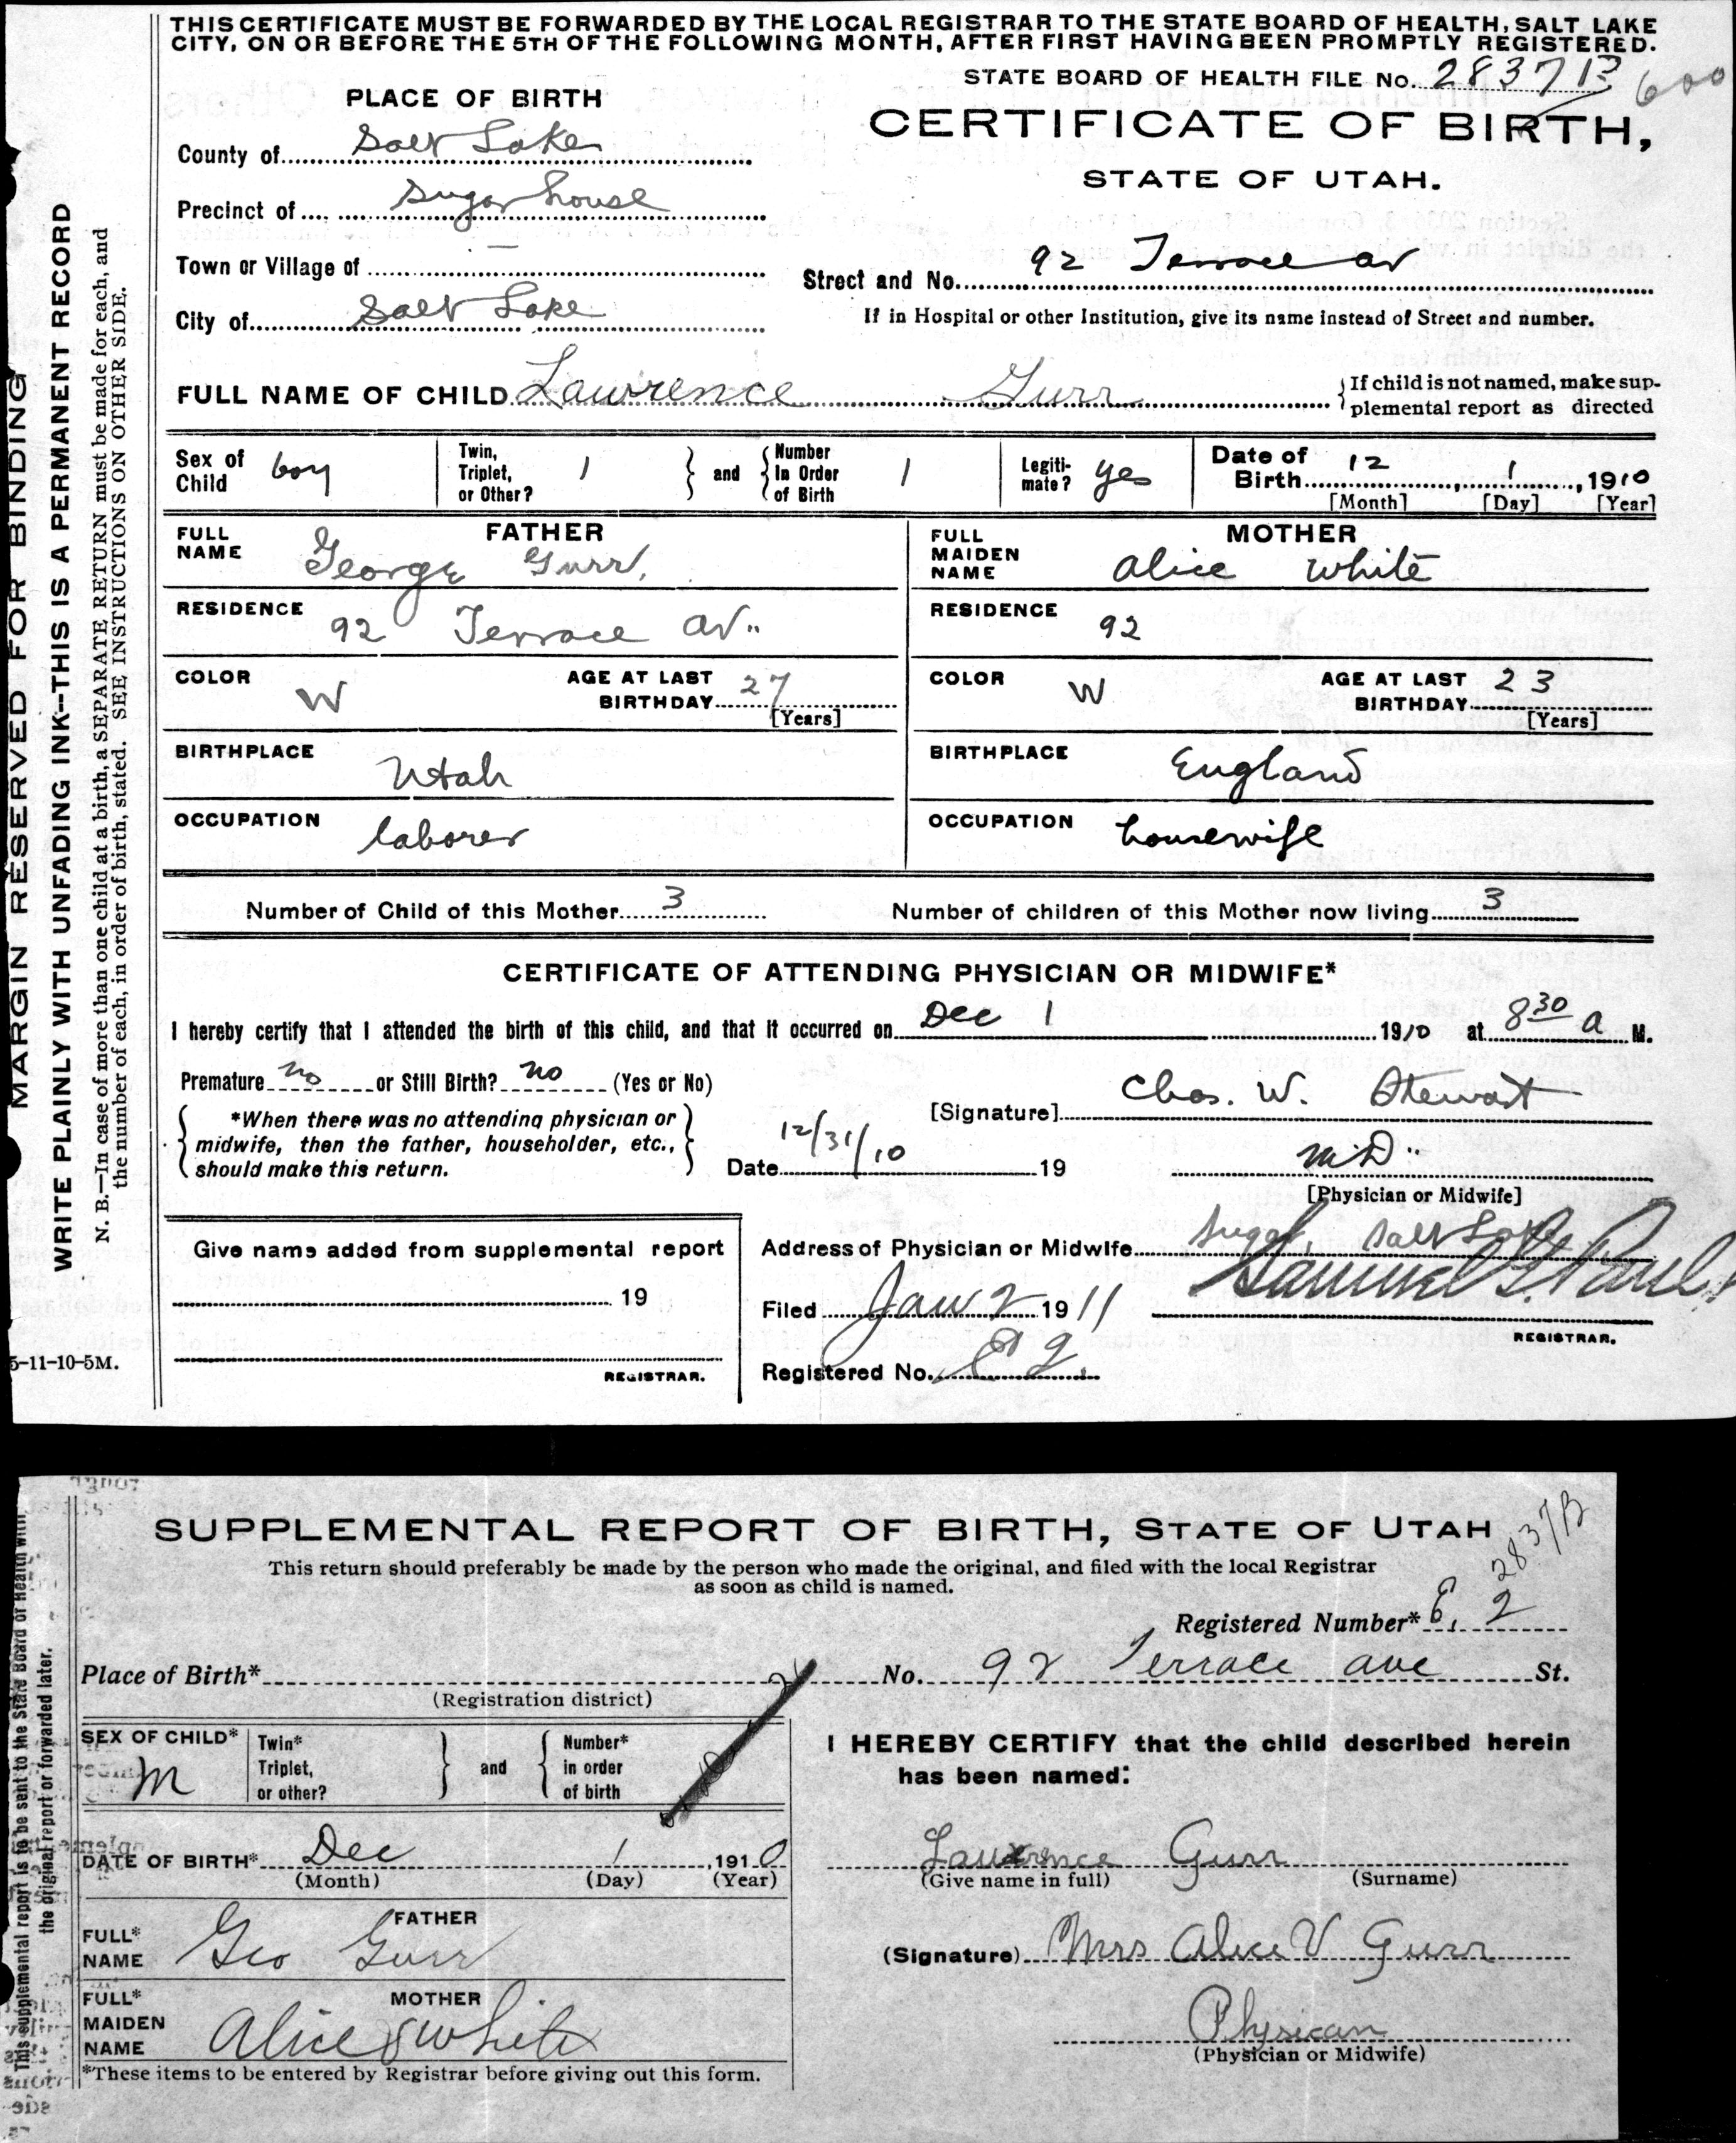 THIS CERTIFICATE MUST BE FORWARDED BY THE LOCAL REGISTRAR TO THE STATE BOARD OF HEALTH, SALT LAKE
CITY, ON OR BEFORE THE 5TH OF THE FOLLOWING MONTH, AFTER FIRST HAVING BEEN PROMPTLY REGISTERED.
STATE BOARD OF HEALTH FILE No. 600
PLACE OF BIRTH
CERTIFICATE OF BIRTH,
STATE OF UTAH.
County of Salt Lake
Precinct of Sugar house
Town or Village of —
Street and No. 92 Terrace av
City of Salt Lake
If in Hospital or other Institution, give its name instead of Street and number.
FULL NAME OF CHILD Lawrence Gurr
{If child is not named, make sup-
plemental report as directed
Sex of Child boy
Twin, Triplet, or Other? 1 } and { Number In Order of Birth 1
Legiti-mate? yes
Date of Birth 12, 1, 1910
[Month] [Day] [Year]
FATHER
FULL NAME George Gurr.
RESIDENCE 92 Terrace av..
COLOR W
AGE AT LAST BIRTHDAY 27
[Years]
BIRTHPLACE Utah
OCCUPATION laborer
MOTHER
FULL MAIDEN NAME Alice White
RESIDENCE 92
COLOR W
AGE AT LAST BIRTHDAY 23
[Years]
BIRTHPLACE England
OCCUPATION housewife
Number of Child of this Mother 3
Number of children of this Mother now living 3
CERTIFICATE OF ATTENDING PHYSICIAN OR MIDWIFE*
I hereby certify that I attended the birth of this child, and that it occurred on Dec 1 1910 at 8 30 a M.
Premature no or Still Birth? no (Yes or No)
*When there was no attending physician or
midwife, then the father, householder, etc.,
should make this return.
[Signature] Chas. W. Stewart
Date 12/31/10 19
M.D..
[Physician or Midwife]
Address of Physician or Midwife Sugar, Salt Lake
Give name added from supplemental report
19
REGISTRAR.
Filed Jan 2 1911
Samuel G. Paul
REGISTRAR.
Registered No. 2.
5-11-10-5M.
MARGIN RESERVED FOR BINDING
WRITE PLAINLY WITH UNFADING INK--THIS IS A PERMANENT RECORD
N. B.—In case of more than one child at a birth, a SEPARATE RETURN must be made for each, and
the number of each, in order of birth, stated. SEE INSTRUCTIONS ON OTHER SIDE.
SUPPLEMENTAL REPORT OF BIRTH, STATE OF UTAH
This return should preferably be made by the person who made the original, and filed with the local Registrar
as soon as child is named.
Registered Number* 2
Place of Birth* No. 92 Terrace ave St.
(Registration district)
SEX OF CHILD* M
Twin* Triplet, or other? } and { Number* in order of birth
DATE OF BIRTH* Dec 1, 1910
(Month) (Day) (Year)
FATHER
FULL* NAME Geo Gurr
MOTHER
FULL* MAIDEN NAME Alice White
*These items to be entered by Registrar before giving out this form.
I HEREBY CERTIFY that the child described herein
has been named:
Lawrence Gurr
(Give name in full) (Surname)
(Signature) Mrs Alice V Gurr
Physican
(Physician or Midwife)
This supplemental report is to be sent to the State Board of Health with
the original report or forwarded later.